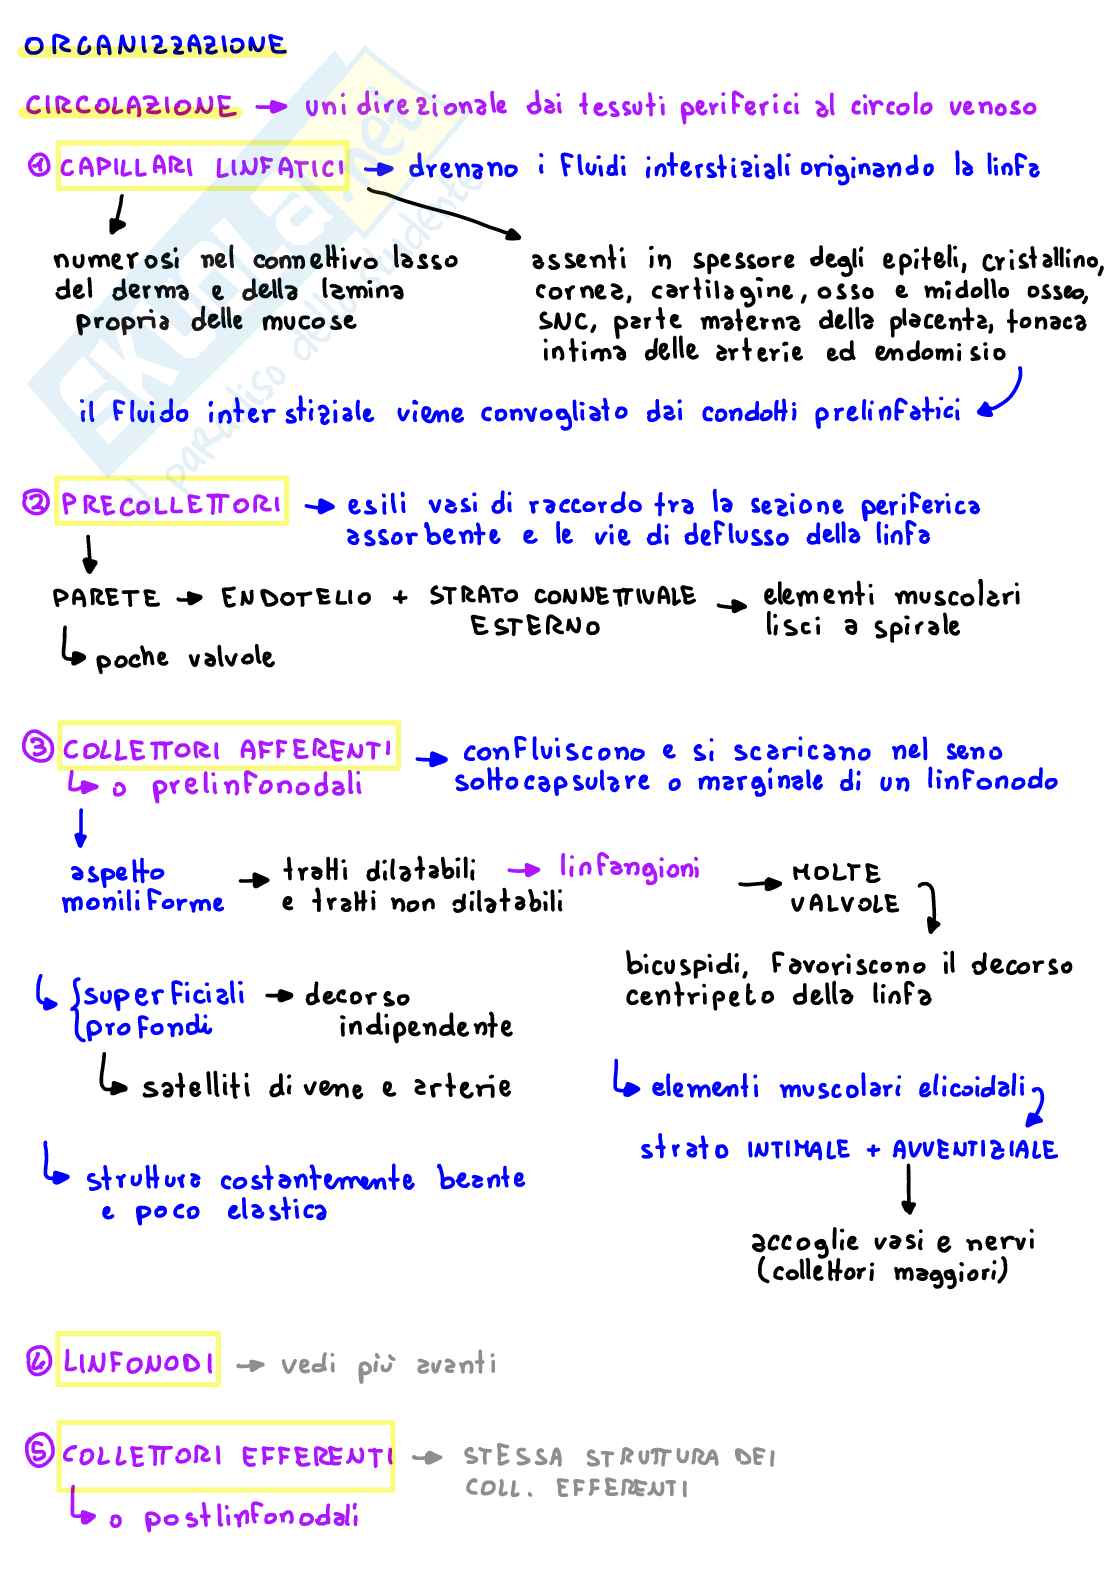 ORGANIZZAZIONE
CIRCOLAZIONE → unidirezionale dai tessuti periferici al circolo venoso
① CAPILLARI LINFATICI → drenano i fluidi interstiziali originando la linfa
numerosi nel connettivo lasso
del derma e della lamina
propria delle mucose
assenti in spessore degli epiteli, cristallino,
cornea, cartilagine, osso e midollo osseo,
SNC, parte materna della placenta, tonaca
intima delle arterie ed endomisio
il fluido interstiziale viene convogliato dai condotti prelinfatici
② PRECOLLETTORI → esili vasi di raccordo tra la sezione periferica
assorbente e le vie di deflusso della linfa
PARETE → ENDOTELIO + STRATO CONNETTIVALE → elementi muscolari
ESTERNO lisci a spirale
poche valvole
③ COLLETTORI AFFERENTI → confluiscono e si scaricano nel seno
o prelinfonodali sottocapsulare o marginale di un linfonodo
aspetto → tratti dilatabili → linfangioni → MOLTE
moniliforme e tratti non dilatabili VALVOLE
bicuspidi, favoriscono il decorso
centripeto della linfa
superficiali → decorso
profondi indipendente
satelliti di vene e arterie
elementi muscolari elicoidali
strato INTIMALE + AVVENTIZIALE
struttura costantemente beante
e poco elastica
accoglie vasi e nervi
(collettori maggiori)
④ LINFONODI → vedi più avanti
⑤ COLLETTORI EFFERENTI → STESSA STRUTTURA DEI
COLL. EFFERENTI
o postlinfonodali
SKUOLA.net
il paradiso dello studente